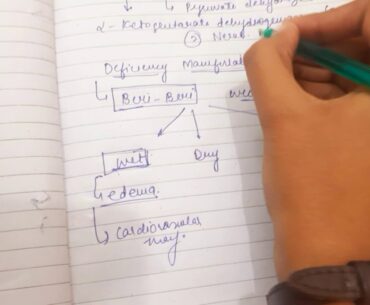 ↳ Pyruvate dehydrogen
α- Ketoglutarate dehydrogenase
②
Deficiency Manifestat
↳ Beri-Beri
wet Dry
↳ edema
↳ Cardiovascular